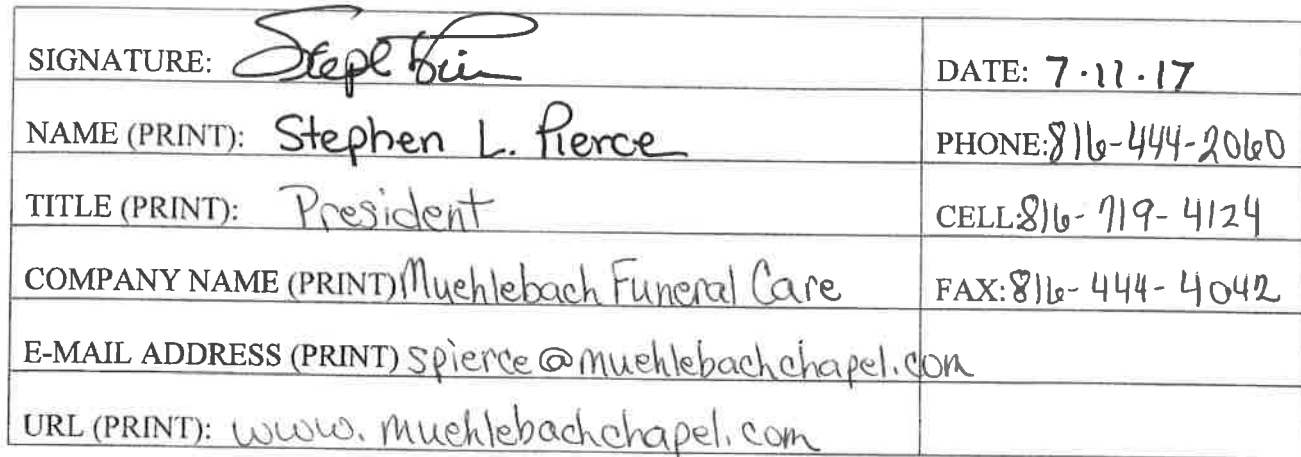 SIGNATURE: DATE: 7.11.17
NAME (PRINT): Stephen L. Pierce PHONE: 816-444-2060
TITLE (PRINT): President CELL: 816-719-4124
COMPANY NAME (PRINT) Muehlebach Funeral Care FAX: 816-444-4042
E-MAIL ADDRESS (PRINT) spierce@muehlebachchapel.com
URL (PRINT): www.muehlebachchapel.com